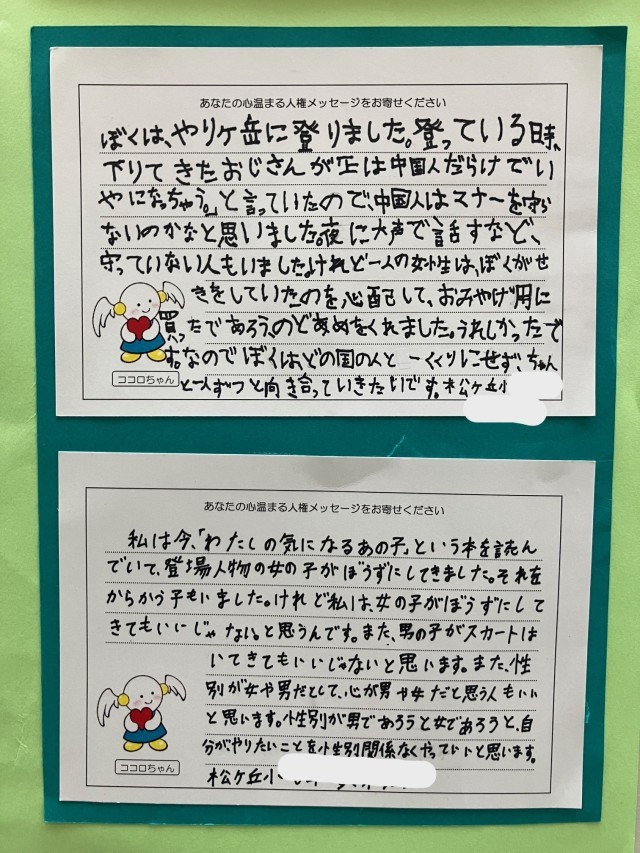 あなたの心温まる人権メッセージをお寄せください
ぼくは、やりヶ岳に登りました。登っている時、
下りてきたおじさんが「上は中国人だらけでい
やになっちゃう。」と言っていたので、中国人はマナーを守ら
ないのかなと思いました。夜に大声で話すなど、
守っていない人もいましたけれど一人の女性は、ぼくがせ
きをしていたのを心配して、おみやげ用に
買ったであろう、のどあめをくれました。うれしかったで
す。なのでぼくはどの国の人と一くくりにせず、ちゃん
と一人ずつと向き合っていきたいです。松ヶ丘小
ココロちゃん
あなたの心温まる人権メッセージをお寄せください
私は今、「わたしの気になるあの子」という本を読ん
でいて、登場人物の女の子がぼうずにしてきました。それを
からかう子もいました。けれど私は、女の子がぼうずにして
きてもいいじゃないと思うんです。また、男の子がスカートは
いてきてもいいじゃないと思います。また、性
別が女や男だとして、心が男や女だと思う人もいい
と思います。性別が男であろうと女であろうと、自
分がやりたいことを性別関係なくやっていいと思います。
松ヶ丘小
ココロちゃん